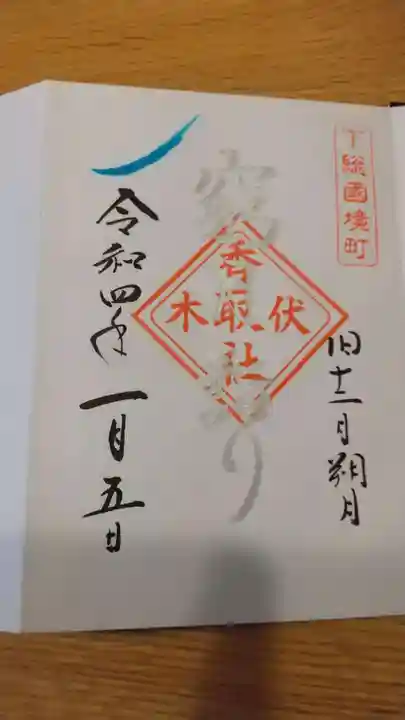 下総國境町
旧十二月朔月
伏木
香取社
令和四年一月五日